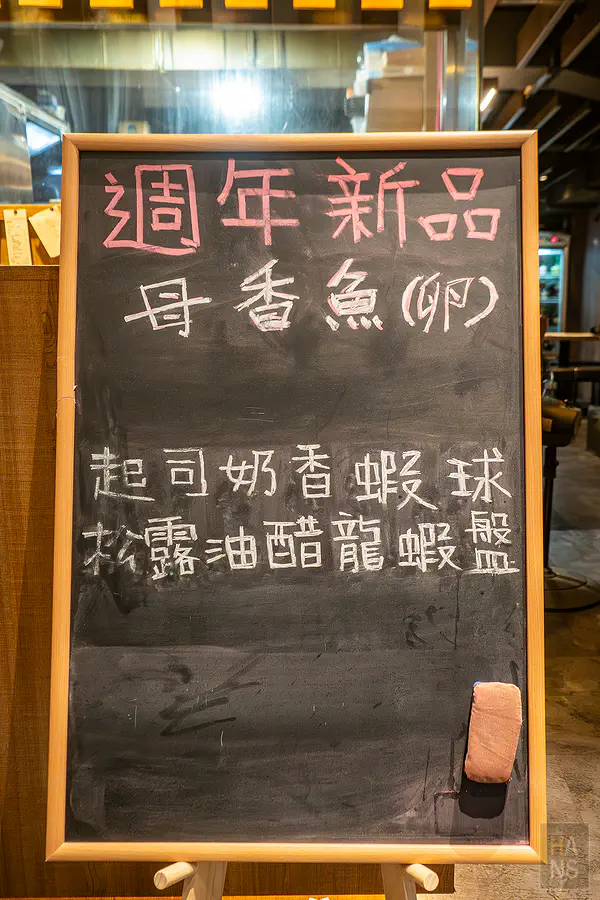 週年新品
母香魚(卵)
起司奶香蝦球
松露油醋龍蝦盤
HANS